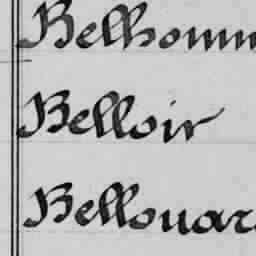 Bellhomm
Belloir
Bellouar